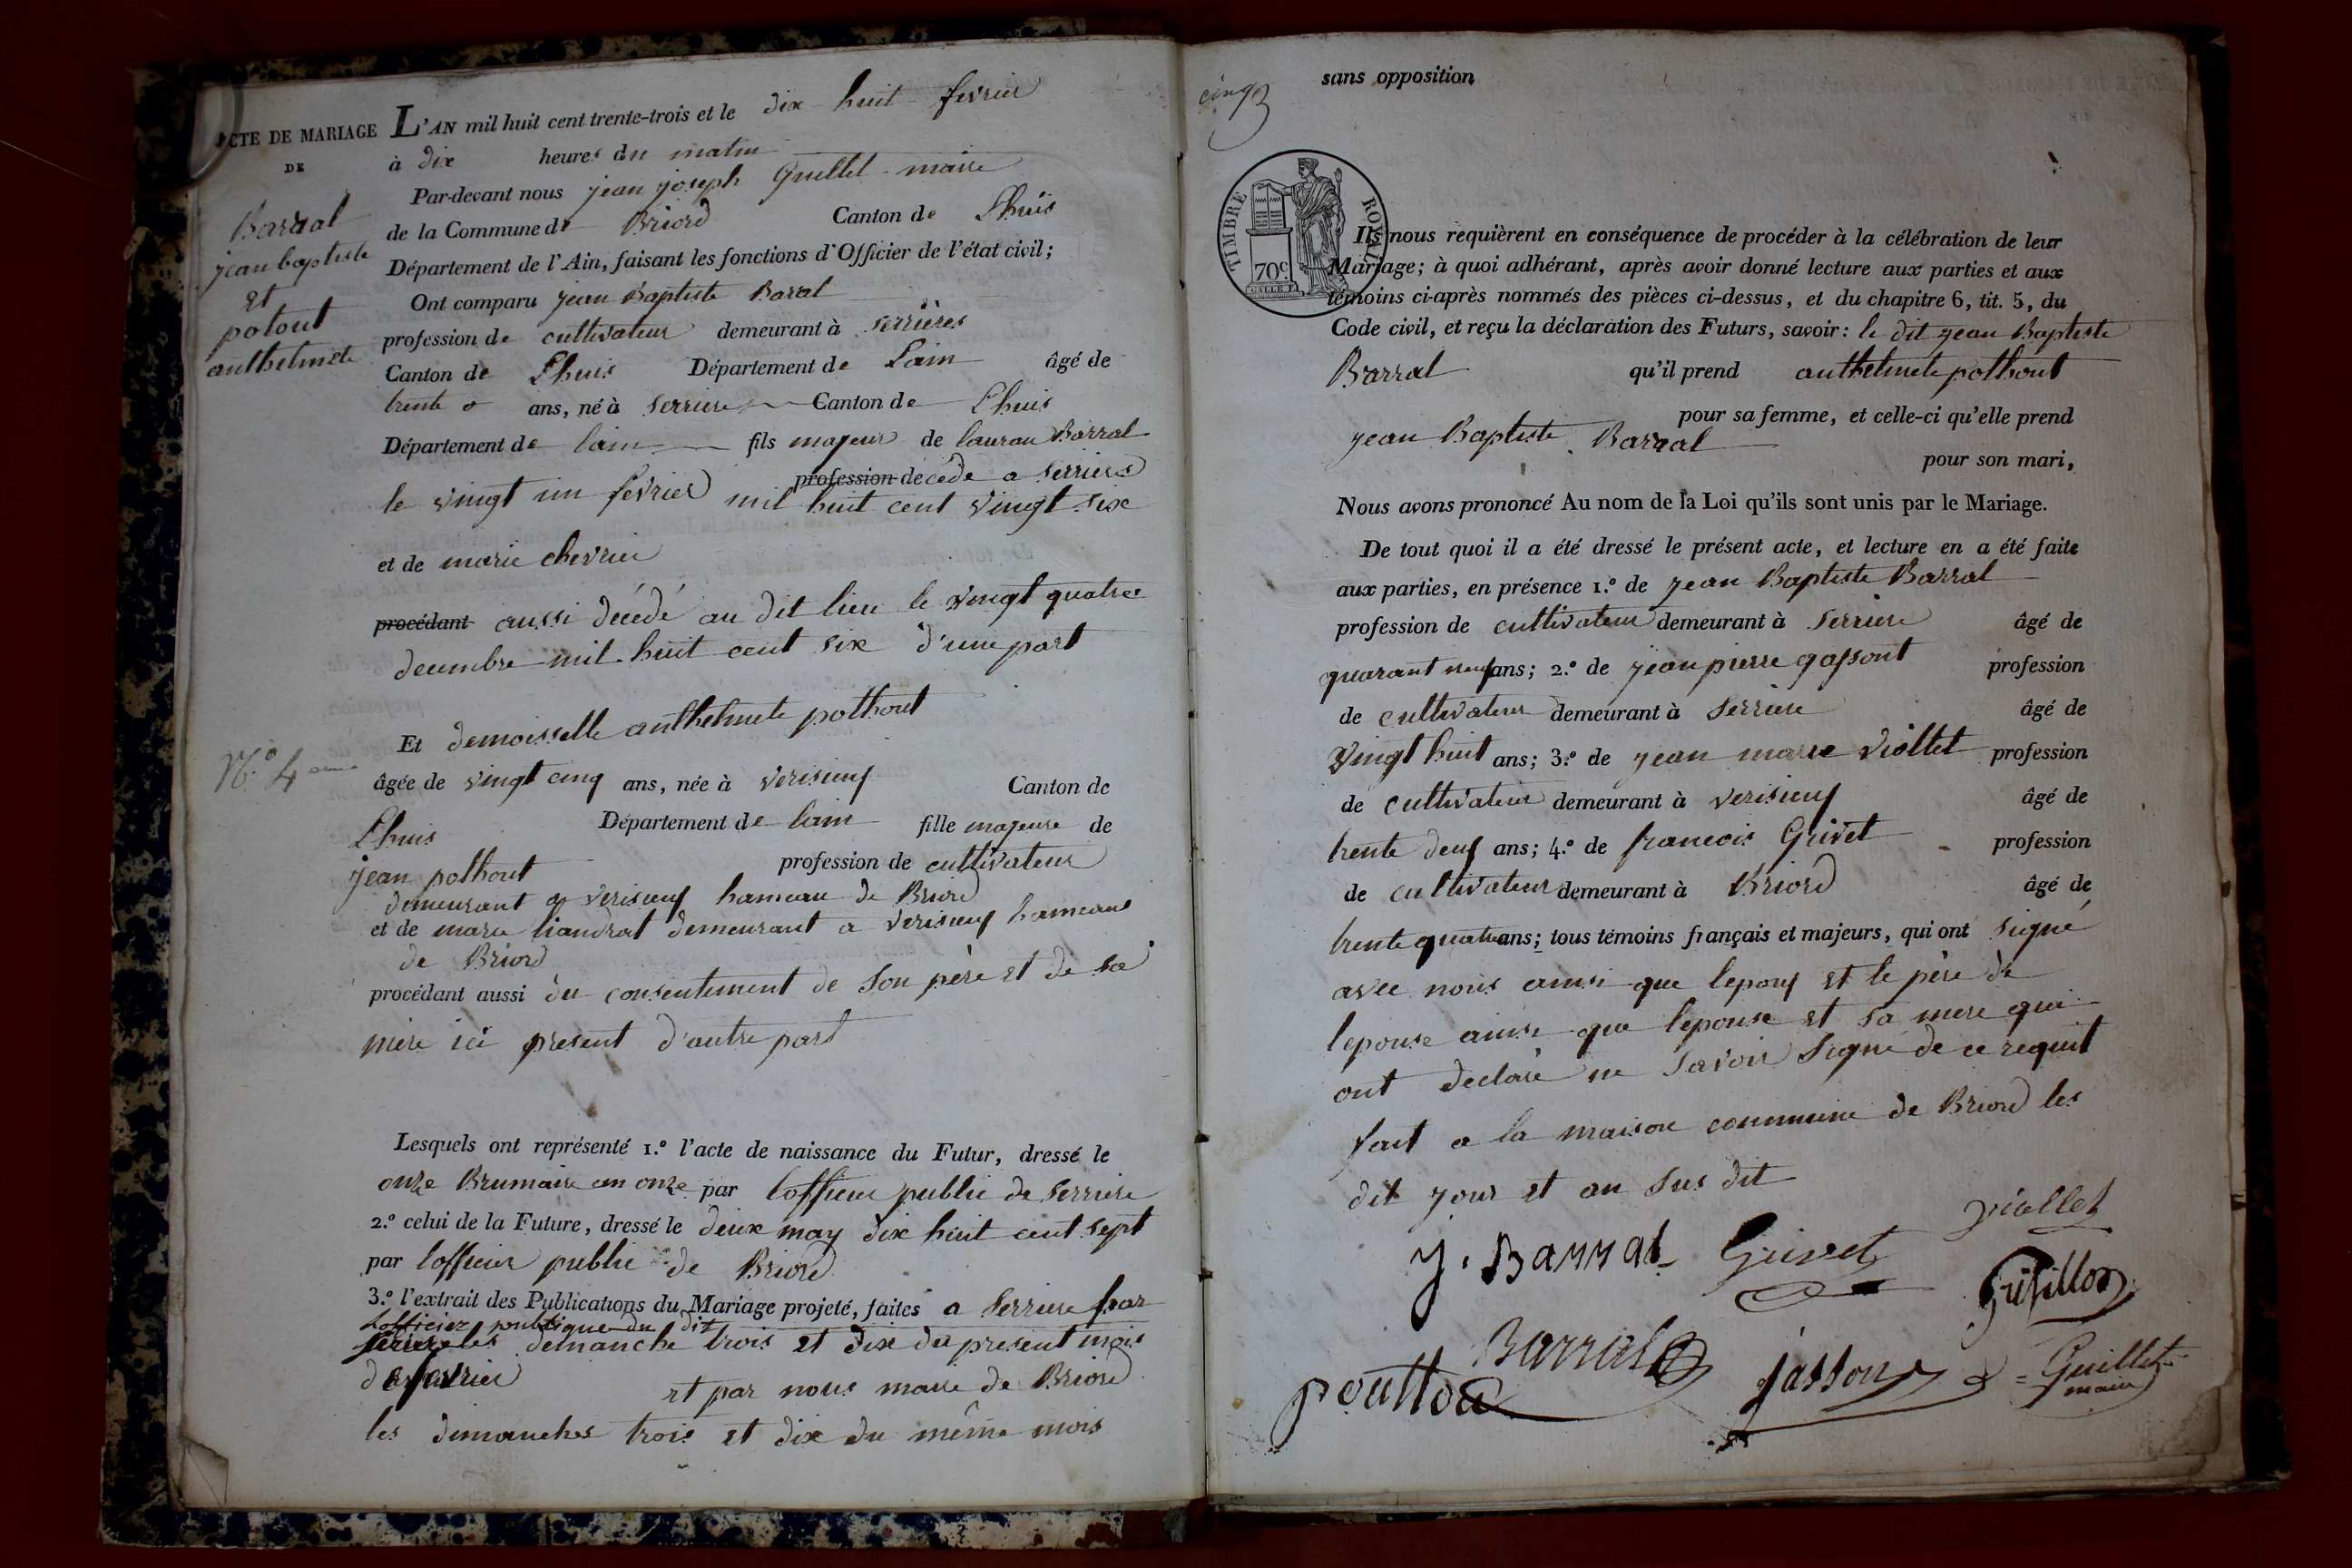 ACTE DE MARIAGE
DE
Barral
jean baptiste
et
potout
anthelmete
N.º 4
L'AN mil huit cent trente-trois et le dix huit fevrier
à dix heures du matin
Par-devant nous jean joseph Guillet maire
de la Commune de Briord Canton de Lhuis
Département de l'Ain, faisant les fonctions d'Officier de l'état civil;
Ont comparu jean Baptiste Baral
profession de cultivateur demeurant à serrières
Canton de Lhuis Département de Lain âgé de
trente ans, né à serriere Canton de Lhuis
Département de lain fils majeur de lauran Barral
profession decede a serriere
le vingt un fevrier mil huit cent vingt six
et de marie chevrier
procédant aussi décédé au dit lieu le vingt quatre
decembre mil huit cent six d'une part
Et demoisselle anthelmete pothout
âgée de vingt cinq ans, née à verisieux Canton de
Lhuis Département de lain fille majeure de
jean pothout profession de cultivateur
demeurant a verisieux hameau de Briord
et de marie liandrat demeurant a verisieux hameaux
de Briord
procédant aussi du consentement de son père et de sa
mère ici present d'autre part
Lesquels ont représenté 1.º l'acte de naissance du Futur, dressé le
onze Brumaire an onze par lofficier public de serriere
2.º celui de la Future, dressé le deux may dix huit cent sept
par lofficier public de Briord
3.º l'extrait des Publications du Mariage projeté, faites a serriere par
Lofficier publique du dit
serriere les demanche trois et dix du present mois
de fevrier et par nous maire de Briord
les dimanches trois et dix du même mois
cinq
sans opposition
TIMBRE ROYAL
70c.
Ils nous requièrent en conséquence de procéder à la célébration de leur
Mariage; à quoi adhérant, après avoir donné lecture aux parties et aux
témoins ci-après nommés des pièces ci-dessus, et du chapitre 6, tit. 5, du
Code civil, et reçu la déclaration des Futurs, savoir: le dit jean Baptiste
Barral qu'il prend anthelmete pothout
pour sa femme, et celle-ci qu'elle prend
jean Baptiste Barral
pour son mari,
Nous avons prononcé Au nom de la Loi qu'ils sont unis par le Mariage.
De tout quoi il a été dressé le présent acte, et lecture en a été faite
aux parties, en présence 1.º de jean Baptiste Barral
profession de cultivateur demeurant à serriere âgé de
quarant neuf ans; 2.º de jean pierre gassont profession
de cultivateur demeurant à serriere âgé de
vingt huit ans; 3.º de jean marie viollet profession
de cultivateur demeurant à verisieux âgé de
trente deux ans; 4.º de francois Grivet profession
de cultivateur demeurant à Briord âgé de
trente quatre ans; tous témoins français et majeurs, qui ont signé
avec nous ainsi que lepoux et le père de
lepouse ainsi que lepouse et sa mere qui
ont declaré ne savoir signé de ce requit
fait a la maison commune de Briord les
dit jour et an sus dit
J. Barral Grivet viollet
Barral
pouttou jasson Guillet
maire